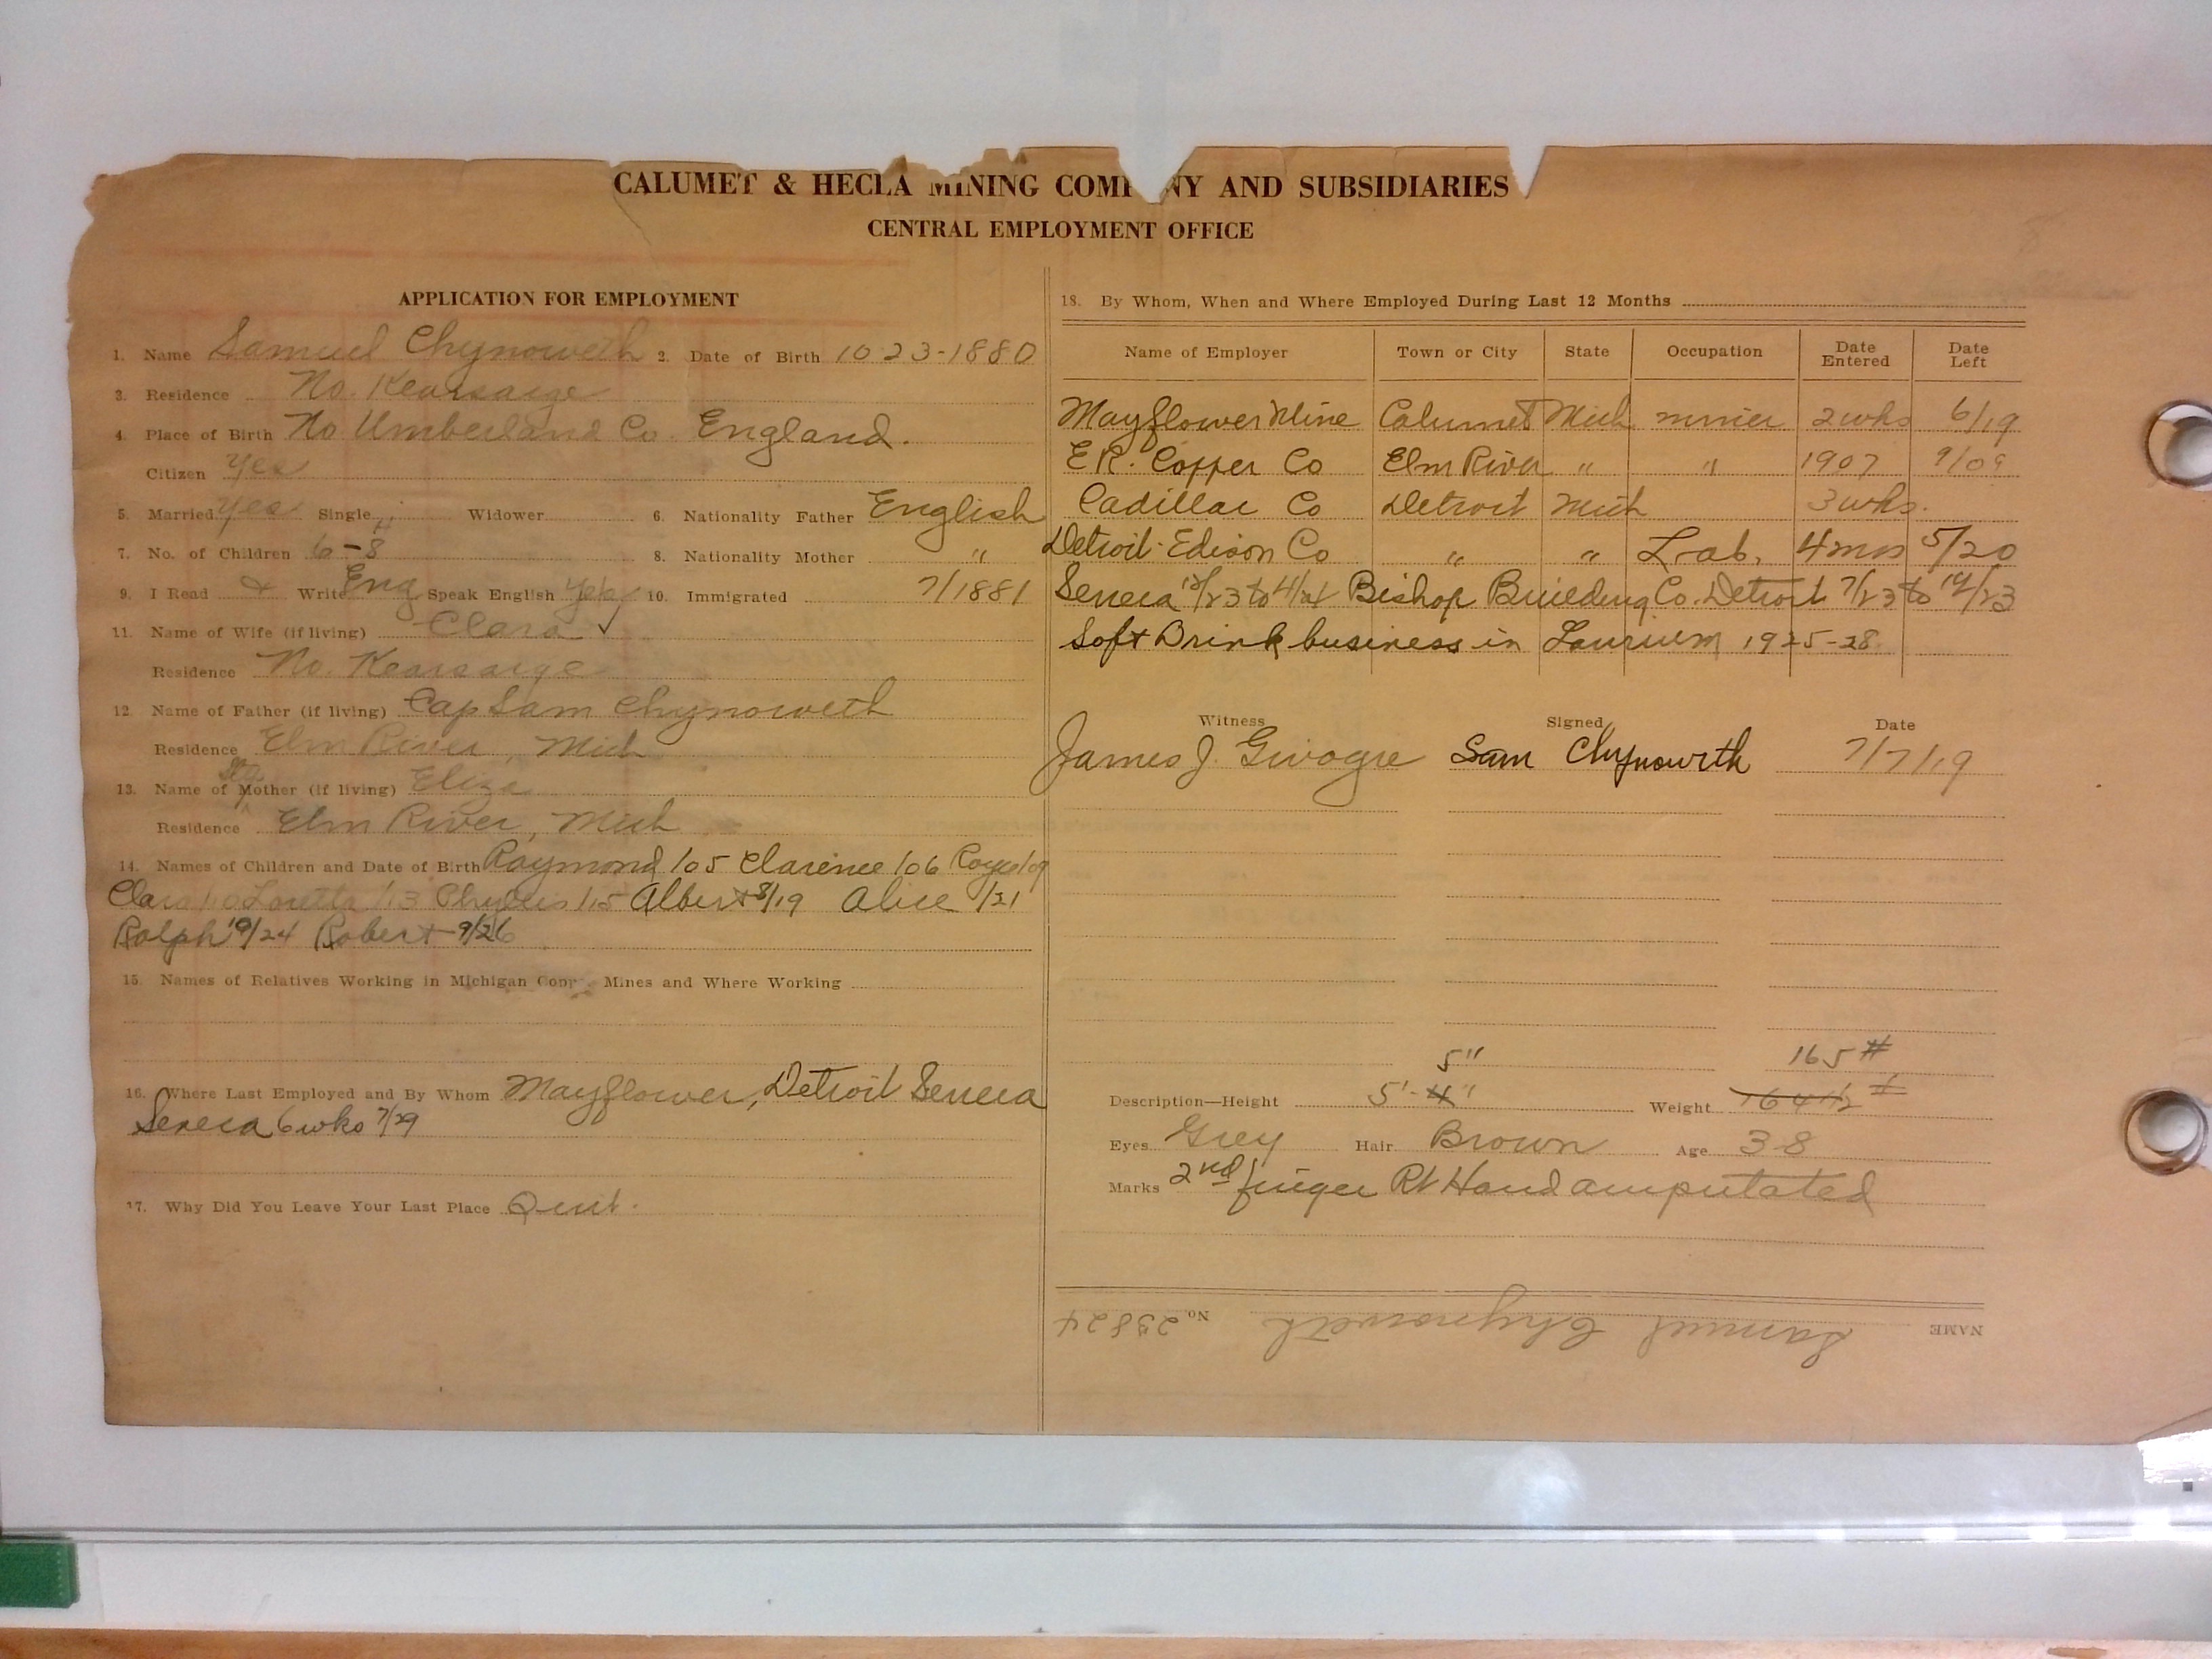 CALUMET & HECLA MINING COMPANY AND SUBSIDIARIES
CENTRAL EMPLOYMENT OFFICE
APPLICATION FOR EMPLOYMENT
1. Name Samuel Chynoweth 2. Date of Birth 10 23-1880
3. Residence No. Kearsarge
4. Place of Birth No Umberland Co. England.
Citizen Yes
5. Married Yes Single Widower 6. Nationality Father English
7. No. of Children 6-8 8. Nationality Mother "
9. I Read & Write Eng Speak English Yes 10. Immigrated 7/1881
11. Name of Wife (if living) Clara
Residence No. Kearsarge
12. Name of Father (if living) Cap Sam Chynoweth
Residence Elm River, Mich
Stp
13. Name of Mother (if living) Eliza
Residence Elm River, Mich
14. Names of Children and Date of Birth Raymond /05 Clarence /06 /09
Clara /10 Loretta /13 Phyllis /15 Albert 8/19 Alice /21
Ralph 10/24 Robert 9/26
15. Names of Relatives Working in Michigan Copper Mines and Where Working
16. Where Last Employed and By Whom Mayflower, Detroit Seneca
Seneca 6 wks 7/29
17. Why Did You Leave Your Last Place Quit.
18. By Whom, When and Where Employed During Last 12 Months
Name of Employer Town or City State Occupation Date Entered Date Left
Mayflower Mine Calumet Mich miner 2 wks 6/19
E R. Copper Co Elm River " " 1907 9/09
Cadillac Co Detroit Mich 3 wks.
Detroit Edison Co " " Lab. 4 mos 5/20
Seneca 12/23 to 4/24 Bishop Building Co. Detroit 7/23 to 12/23
Soft Drink business in Laurium 1925-28
Witness Signed Date
James J. Sam Chynoweth 7/7/19
5" 165 #
Description—Height 5'-4" Weight 164 1/2 #
Eyes Grey Hair Brown Age 38
Marks 2nd finger Rt Hand amputated
NAME Samuel Chynoweth No. 23824